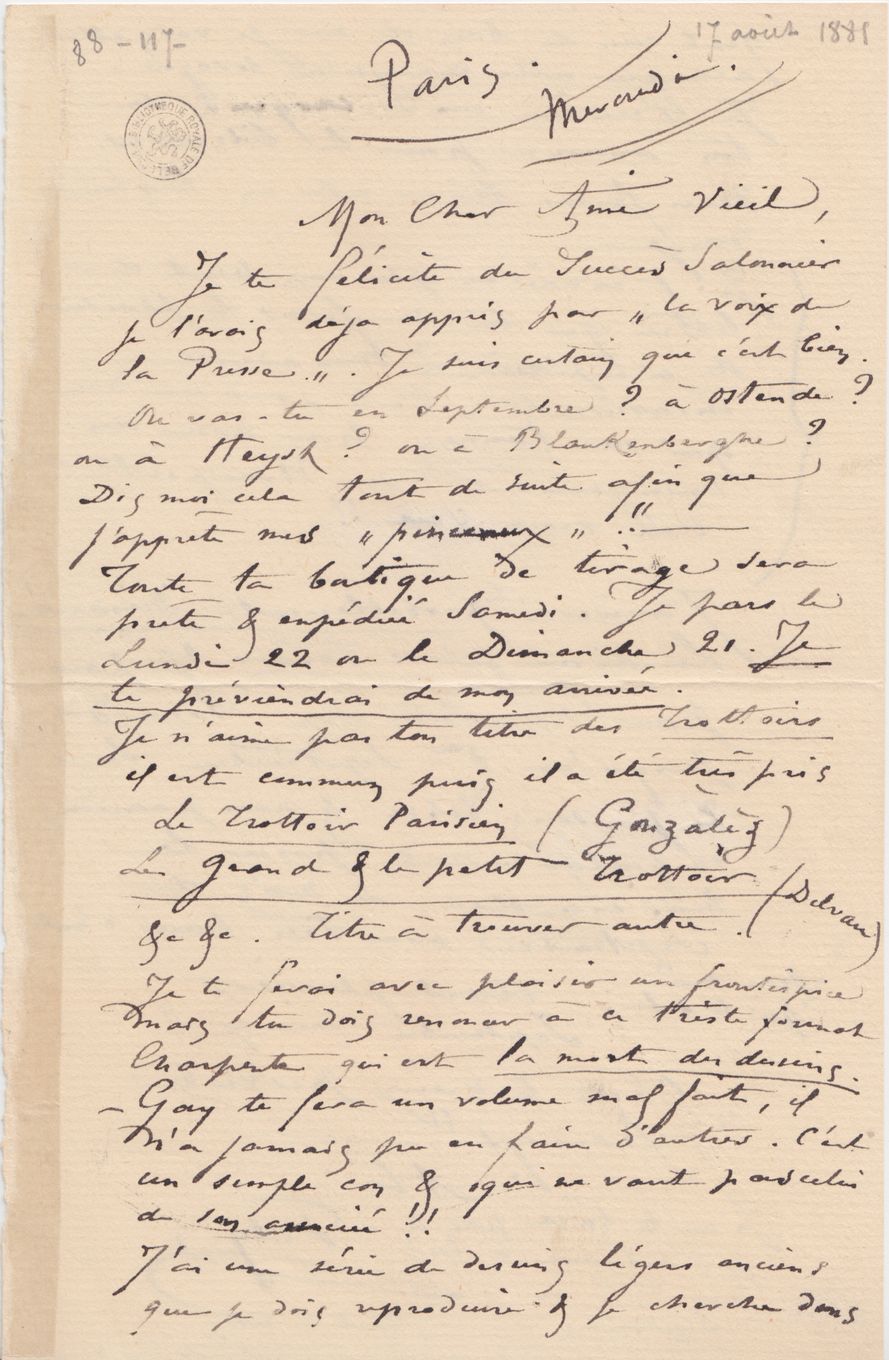 88-117-
17 août 1881
Paris. Mercredi.
BIBLIOTHEQUE ROYALE DE BELGIQUE
Mon Cher Aimé Vieil,
Je te félicite du Succès Salonnier
je l'avais déja appris par „ la voix de
la Presse „. Je suis certain que c'est bien.
Ou vas-tu en Septembre ? à Ostende ?
ou à Heyst ? ou à Blankenberghe ?
Dis moi cela tout de suite afin que
j'apprête mes „ pinceaux „ !!
Toute ta boutique de tirage sera
prête & expédiée Samedi. Je pars le
Lundi 22 ou le Dimanche 21. Je
te préviendrai de mon arrivée.
Je n'aime pas ton titre des Trottoirs
il est commun puis il a été très pris
Le Trottoir Parisien (Gonzalès)
Le Grand & le petit Trottoir (Delvau)
&c &c. Titre à trouver autre.
Je te ferai avec plaisir un frontispice
mais tu dois renoncer à ce triste format
Charpentier qui est la mort des dessins.
- Gay te fera un volume mal fait, il
n'a jamais pu en faire d'autres. C'est
un simple con & qui ne vaut pas celui
de son !!
J'ai une série de dessins légers anciens
que je dois reproduire & je cherche dans